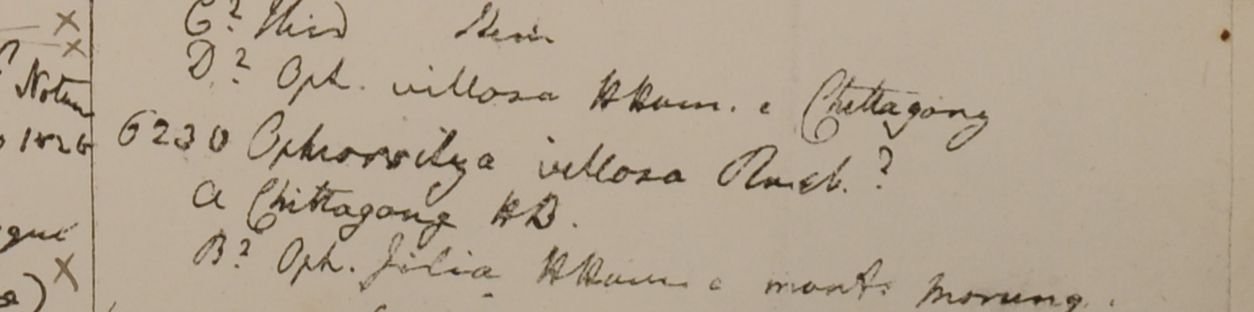 C? Ibid Item
D? Oph. villosa HHam. e Chittagong
6230 Ophioxxilya villosa Roxb.?
a Chittagong HB.
B? Oph. Julia HHam e mont: Morung.
Notum
1826
que